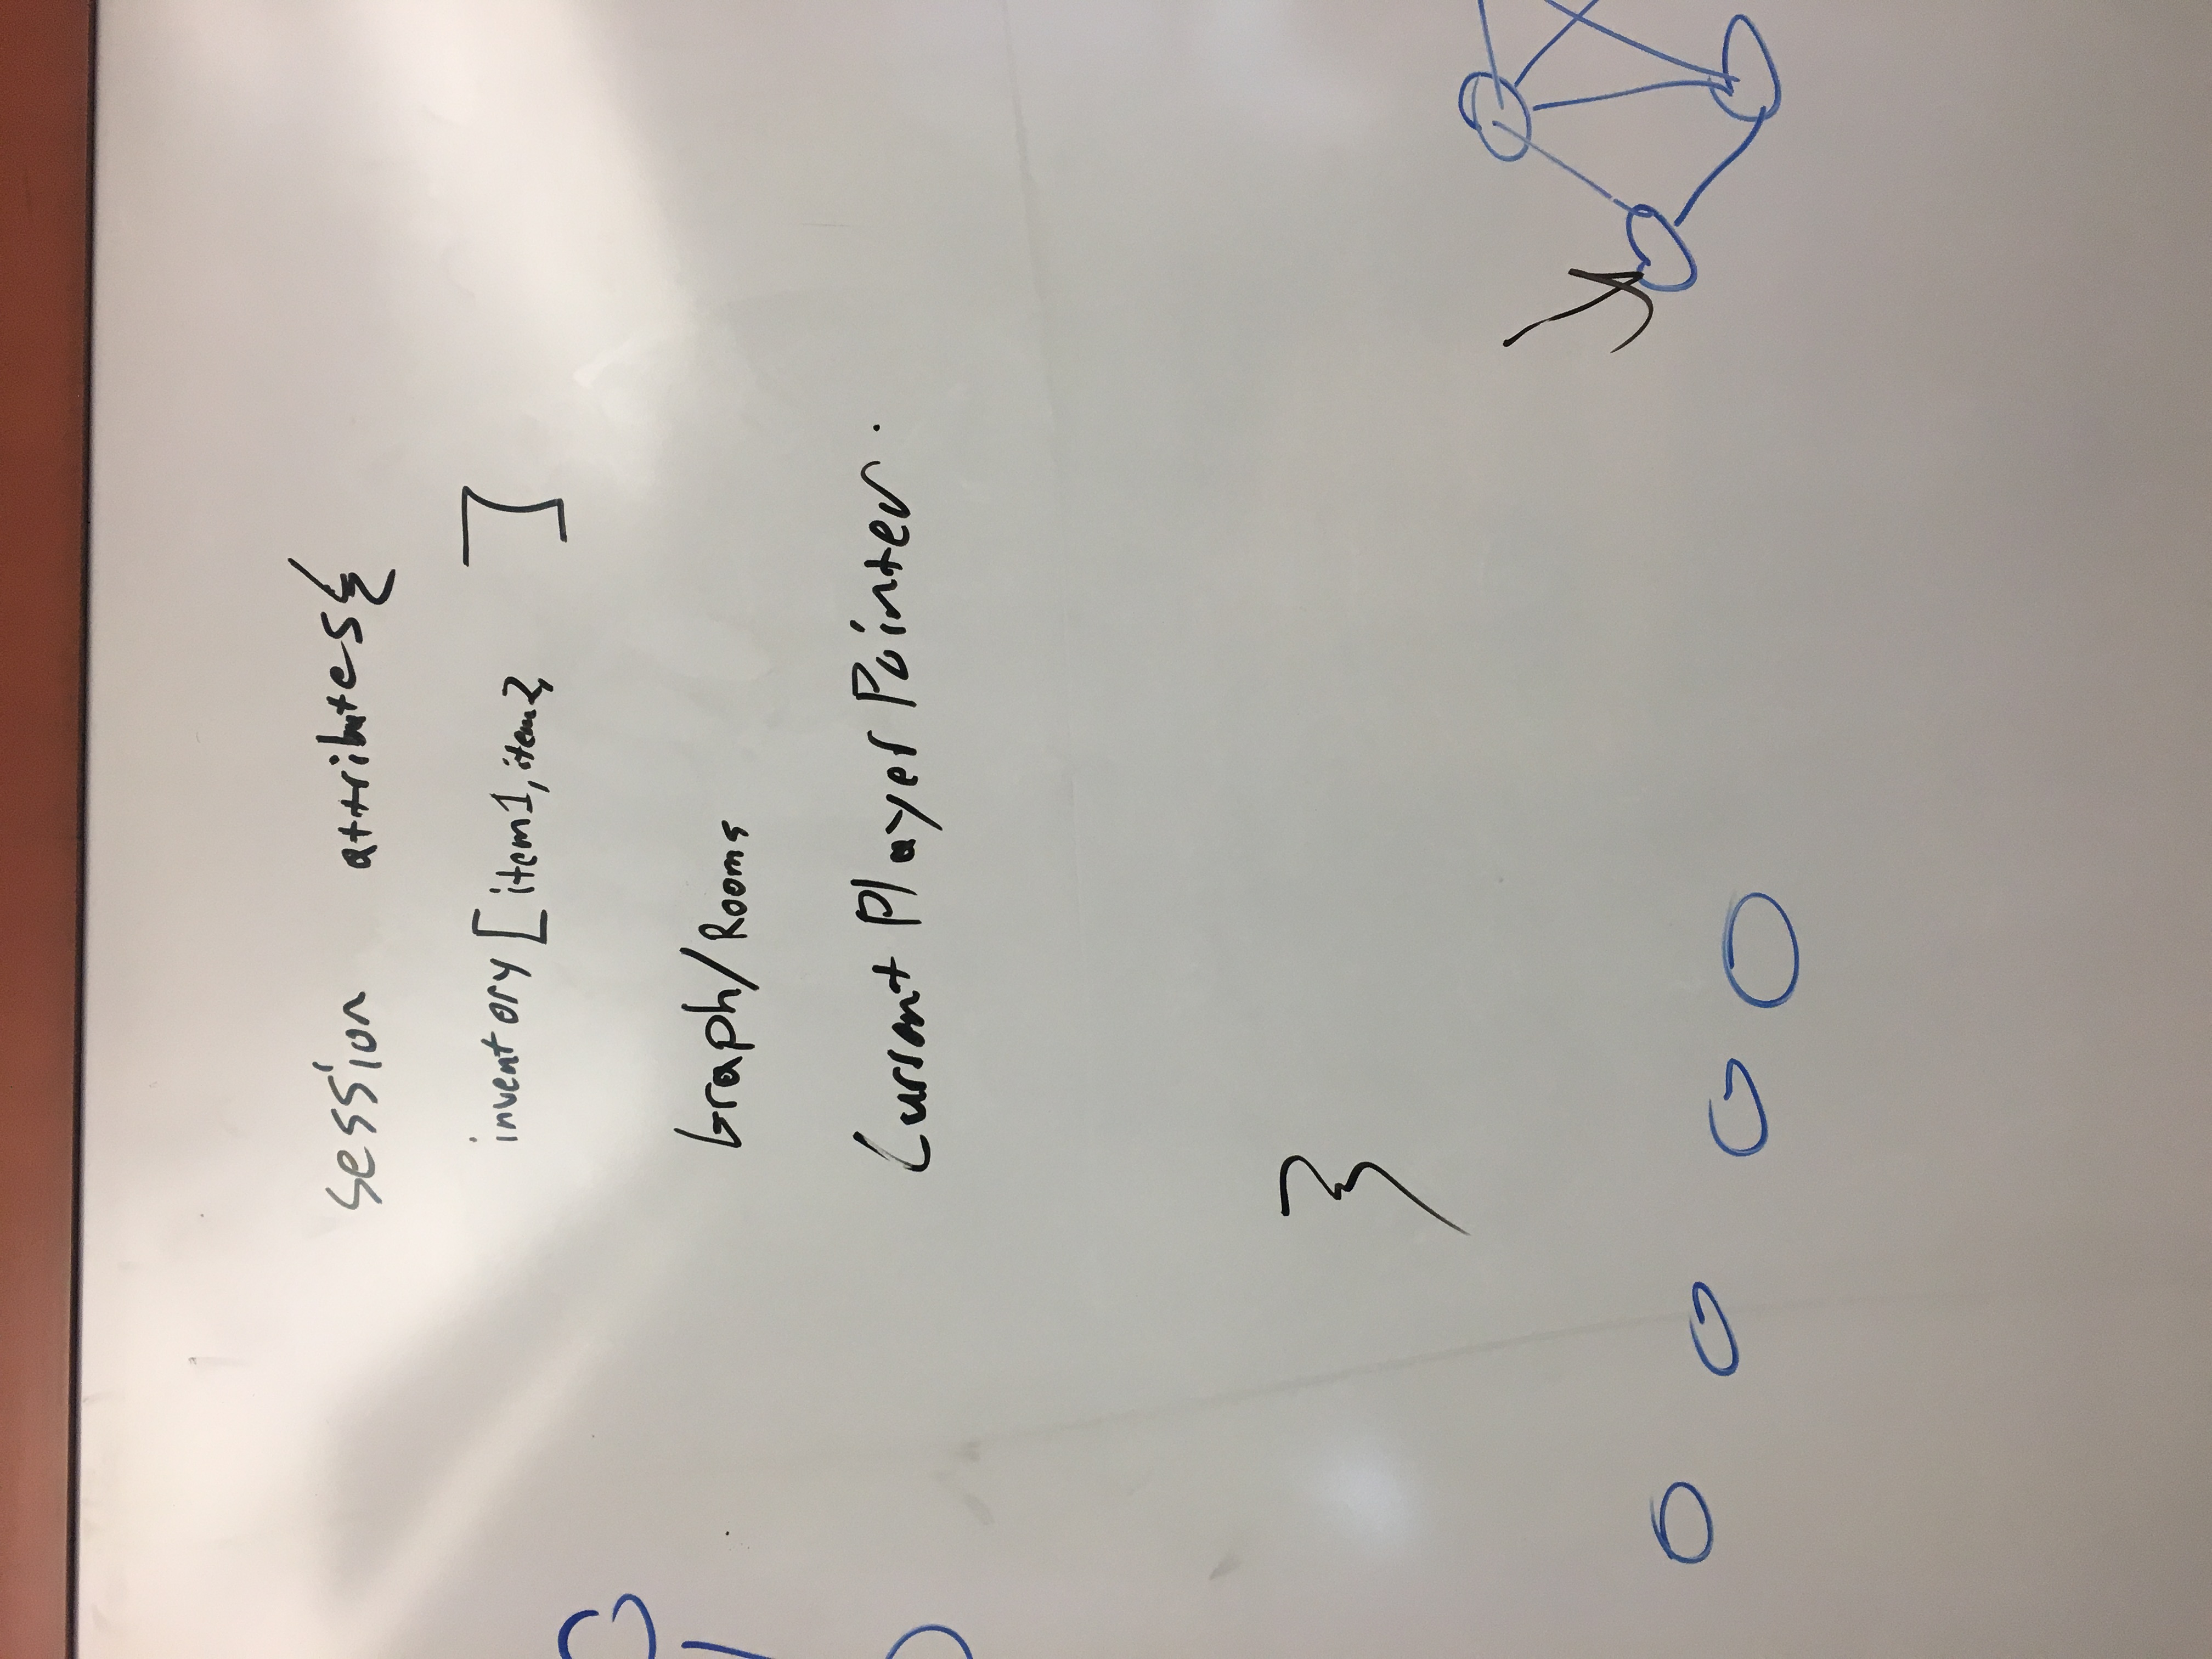 session attributes{
inventory[item1, item2, ]
Graph/Rooms
Current Player Pointer.
}